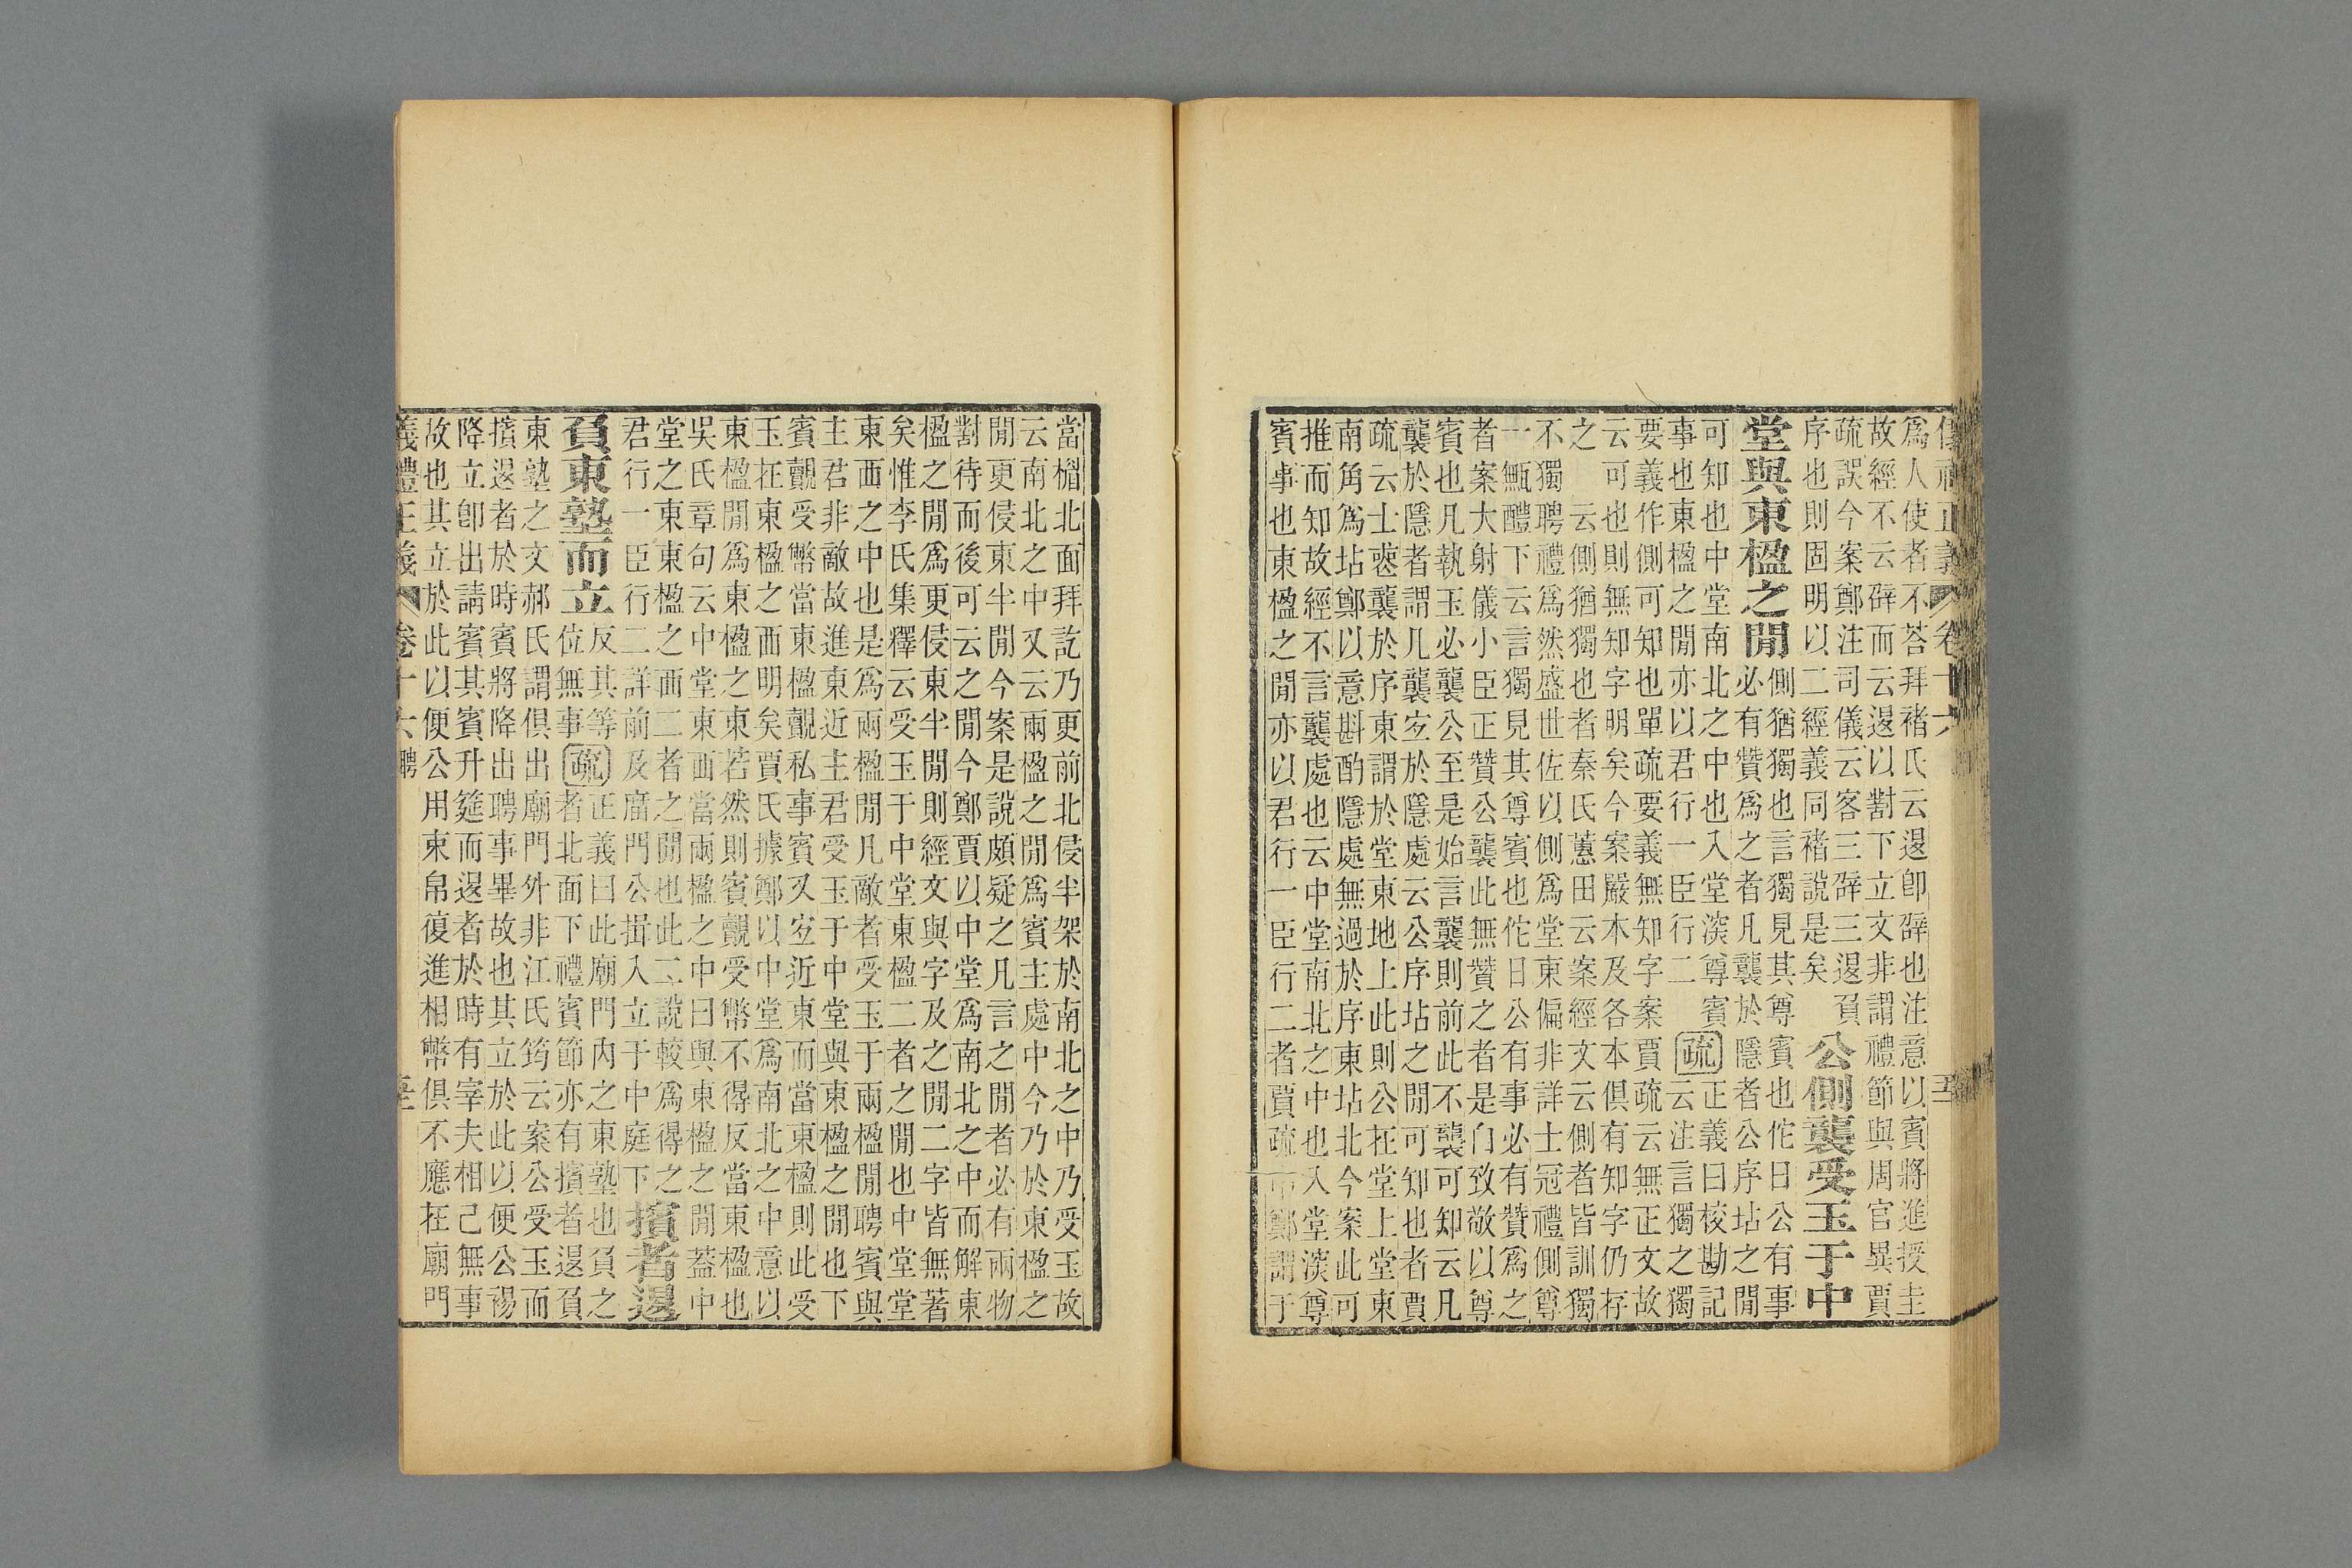 爲人使者不荅拜褚氏云退卽辭也注意以賓將進授圭
故經不云辭而云退以對下立文非謂禮節與周官異賈
疏誤今案鄭注司儀云客三辭三退負
序也則固明以二經義同褚說是矣
公側襲受玉于中
堂與東楹之閒
側猶獨也言獨見其尊賓也佗日公有事
必有贊爲之者凡襲於隱者公序坫之閒
可知也中堂南北之中也入堂深尊賓
事也東楹之閒亦以君行一臣行二
疏
正義曰校勘記
云注言獨之獨
要義作側可知也單疏要義無知字案賈疏云無正文故
云可也則無知字明矣今案嚴本及各本俱有知字仍存
之 云側猶獨也者秦氏蕙田云案經文云側者皆訓獨
不獨聘禮爲然盛世佐以側爲堂東偏非詳士冠禮側尊
一甒醴下云言獨見其尊賓也佗日公有事必有贊爲之
者案大射儀小臣正贊公襲此無贊之者是門致敬以尊
賓也凡執玉必襲公至是始言襲則前此不襲可知云凡
襲於隱者謂凡襲宐於隱處云公序坫之閒可知也者賈
疏云士喪襲於序東謂於堂東地上此則公在堂上堂東
南角爲坫鄭以意斟酌隱處無過於序東坫北今案此可
推而知故經不言襲處也云中堂南北之中也入堂深尊
賓事也東楹之閒亦以君行一臣行二者賈疏申鄭謂于
當楣北面拜訖乃更前北侵半架於南北之中乃受玉故
云南北之中又云兩楹之閒爲賓主處中今乃於東楹之
閒更侵東半閒今案是說頗疑之凡言之閒者必有兩物
對待而後可云之閒今鄭賈以中堂爲南北之中而解東
楹之閒爲更侵東半閒則經文與字及之閒二字皆無著
矣惟李氏集釋云受玉于中堂東楹二者之閒也中堂堂
東西之中也是爲兩楹閒凡敵者受玉于兩楹閒聘賓與
主君非敵故進東近主君受玉于中堂與東楹之閒也下
賓覿受幣當東楹覿私事賓又宐近東而當東楹則此受
玉在東楹之西明矣賈氏據鄭以中堂爲南北之中意以
東楹閒爲東楹之東若然則賓覿受幣不得反當東楹也
吳氏章句云中堂東西當兩楹之中曰與東楹之閒蓋中
堂之東東楹之西二者之閒也此二說較爲得之
君行一臣行二詳前及廣門公揖入立于中庭下
擯者退
負東塾而立
反其等
位無事
疏
正義曰此廟門內之東塾也負之
者北面下禮賓節亦有擯者退負
東塾之文郝氏謂俱出廟門外非江氏筠云案公受玉而
擯退者於時賓將降出聘事畢故也其立於此以便公裼
降立卽出請賓其賓升筵而退者於時有宰夫相己無事
故也其立於此以便公用東帛復進相幣俱不應在廟門
儀禮正義 卷十六 聘